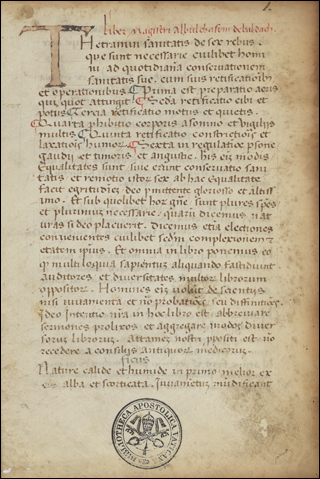 Liber Magistri Albulchasem de baldach.
THetramun sanitatis de sex rebus.
que sunt necessarie cuilibet homi
ni ad quotidianã conservationem
sanitatis sue. cum suis rectificatiõibus
et operationibus. Prima est preparatio aeris
qui cor attingit. Seda rectificatio cibi et
potus. Tercia rectificatio motus et quietis.
Quarta phibitio corporis a somno et vigiliis
multis. Quinta rectificatio constrictiõis et
laxatiõis humorũ. Sexta in regulatiõe psone
gaudii et timoris et angustie. his eim modis
equalitates sunt sive erunt conservatio sani
tatis et remotio istor sex ab hac equalitate
facit egritudinẽ deo pmittente glorioso et altissi
imo. Et sub quolibet hor gñe. sunt plures spẽs
et plurimũ necessarie. quarũ dicemus nat
uras si deo placuerit. Dicemus etiã electiones
convenientes cuilibet sedm complexionem
etatem ipius. Et omnia in libro ponemus eo
q multiloquia sapientum aliquando fastidiunt
auditores. et diversitates multor librorum
oppositor. Homines eiĩ volũt de scientiis
nisi iuvamenta et nõ probatiões seu diffinitiões.
Ideo intentio nra in hoc libro est abbreviare
sermones prolixos et aggregare modos diver
sorus librorus. attamen nostri ppositi est nõ
recedere a consiliis antiquor medicorus.
ficus
Nature calide et humide in primo melior ex
eis alba et scorticata. Iuvamentũ mũdificant
BIBLIOTHECA APOSTOLICA VATICANA